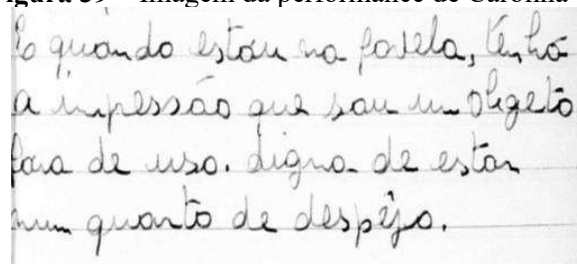 Figura 39 – Imagem da performance de Carolina
E quándo estóu na favela, tênho
a impessão que sou um obgeto
fora de uso. digno de estar
num quarto de despêjo.